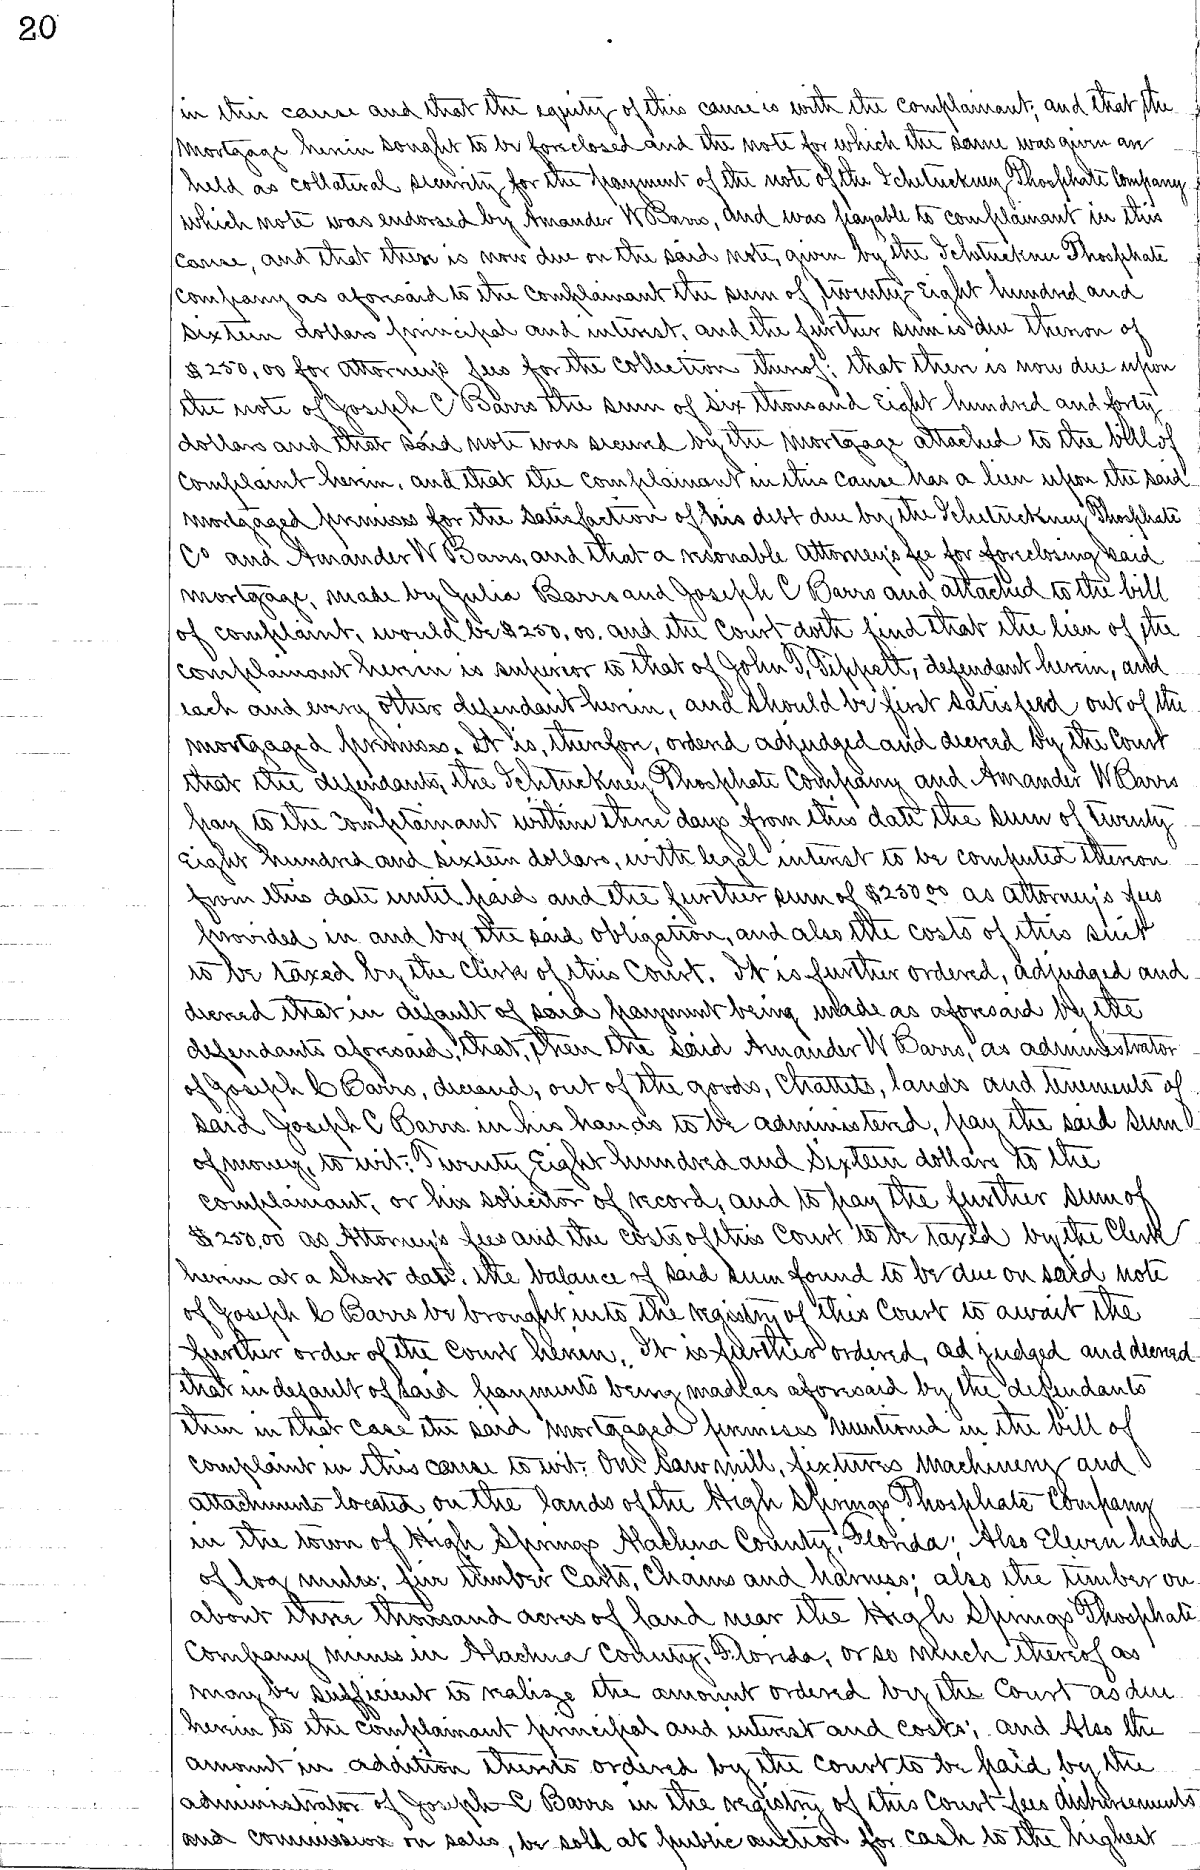 20
in this cause and that the equity of this cause is with the complainant; and that the
Mortgage herein sought to be foreclosed and the note for which the same was given are
held as collateral security for the payment of the note of the Ichetucknee Phosphate Company
which note was endorsed by Amander W Barrs, and was payable to complainant in this
cause, and that there is now due on the said note, given by the Ichtucknee Phosphate
Company as aforesaid to the Complainant the sum of twenty-Eight hundred and
sixteen dollars principal and interest, and the further sum is due thereon of
$250.00 for Attorney's fees for the collection thereof; that there is now due upon
the note of Joseph C Barrs the sum of six thousand Eight hundred and forty
dollars and that said note was secured by the mortgage attached to the bill of
Complaint herein, and that the complainant in this cause has a lien upon the said
mortgaged premises for the satisfaction of his debt due by the Ichetuckney Phosphate
Co and Amander W Barrs, and that a resonable Attorney's fee for foreclosing said
mortgage, made by Julia Barrs and Joseph C Barrs and attached to the bill
of complaint, would be $250.00. and the Court doth find that the lien of the
complainant herein is superior to that of John T, Tippett, defendant herein, and
each and every other defendant herein, and should be first satisfied out of the
mortgaged premises. It is, therefore, ordered adjudged and decreed by the Court
that the defendants, the Ichtuckney Phosphate Company and Amander W Barrs
pay to the Complainant within three days from this date the sum of Twenty
Eight hundred and sixteen dollars, with legal interest to be computed thereon
from this date until paid and the further sum of $250.00 as attorney's fees
provided in and by the said obligation, and also the costs of this suit
to be taxed by the Clerk of this Court. It is further ordered, adjudged and
decreed that in default of said payment being made as aforesaid by the
defendants aforesaid, that, then the said Amander W Barrs, as administrator
of Joseph C Barrs, deceased, out of the goods, Chattels, lands and tenements of
said Joseph C Barrs in his hands to be administered, pay the said sum
of money, to wit: Twenty Eight hundred and Sixteen dollars to the
complainant, or his solicitor of record, and to pay the further sum of
$250.00 as Attorney's fees and the costs of this Court to be taxed by the Clerk
herein at a short date. the balance of said sum found to be due on said note
of Joseph C Barrs be brought into the registry of this Court to await the
further order of the Court herein. It is further ordered, adjudged and decreed
that in default of said payments being made as aforesaid by the defendants
then in that case the said mortgaged premises mentioned in the bill of
complaint in this cause to wit: One Saw mill, fixtures Machinery and
attachments located on the lands of the High Springs Phosphate Company
in the town of High Springs Alachua County, Florida; Also Eleven head
of log mules; five timber Carts, Chains and harness; also the timber on
about three thousand acres of land near the High Springs Phosphate
Company mines in Alachua County, Florida, or so much thereof as
may be sufficient to realize the amount ordered by the Court as due
herein to the complainant principal and interest and costs; and Also the
amount in addition thereto ordered by the court to be paid by the
administrator of Joseph C Barrs in the registry of this Court fees disbursements
and commissions on sales, be sold at public auction for cash to the highest